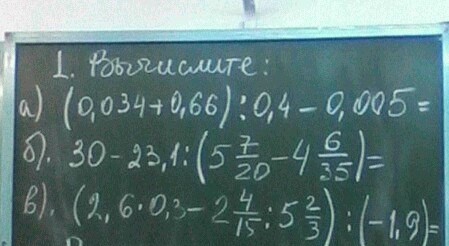 1. Вычислите:
а) (0,034+0,66):0,4-0,005=
б). 30-23,1:(5 7/20-4 6/35)=
в). (2,6·0,3-2 4/15:5 2/3):(-1,9)=